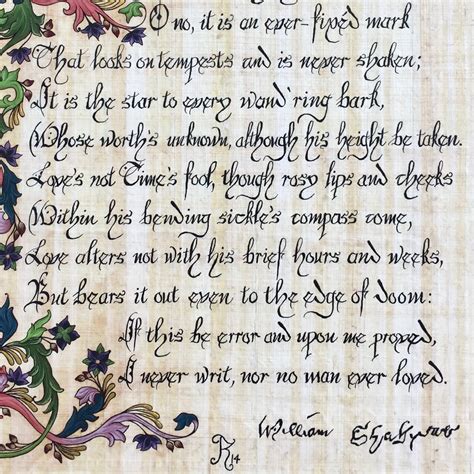 O no, it is an ever-fixed mark
That looks on tempests and is never shaken;
It is the star to every wand'ring bark,
Whose worth's unknown, although his height be taken.
Love's not Time's fool, though rosy lips and cheeks
Within his bending sickle's compass come,
Love alters not with his brief hours and weeks,
But bears it out even to the edge of doom:
If this be error and upon me proved,
I never writ, nor no man ever loved.
William